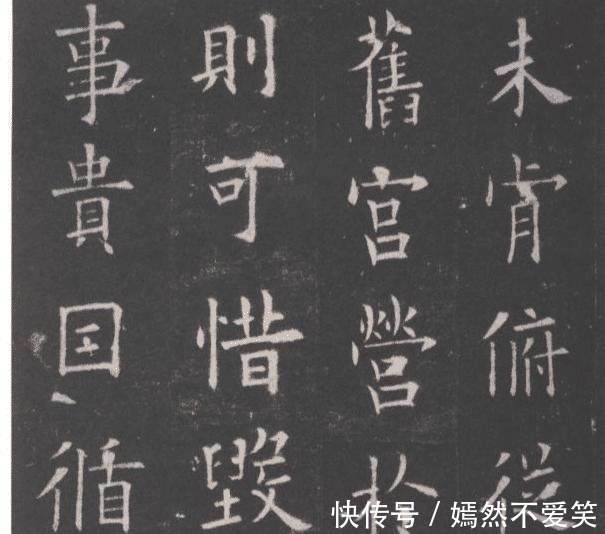 未肯俯從
舊宮營於
則可惜毀
事貴因循
快传号 / 嫣然不爱笑